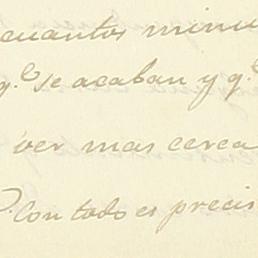 cuantos minu
q.e se acaban y q.e
ver mas cerca
Con todo es precis